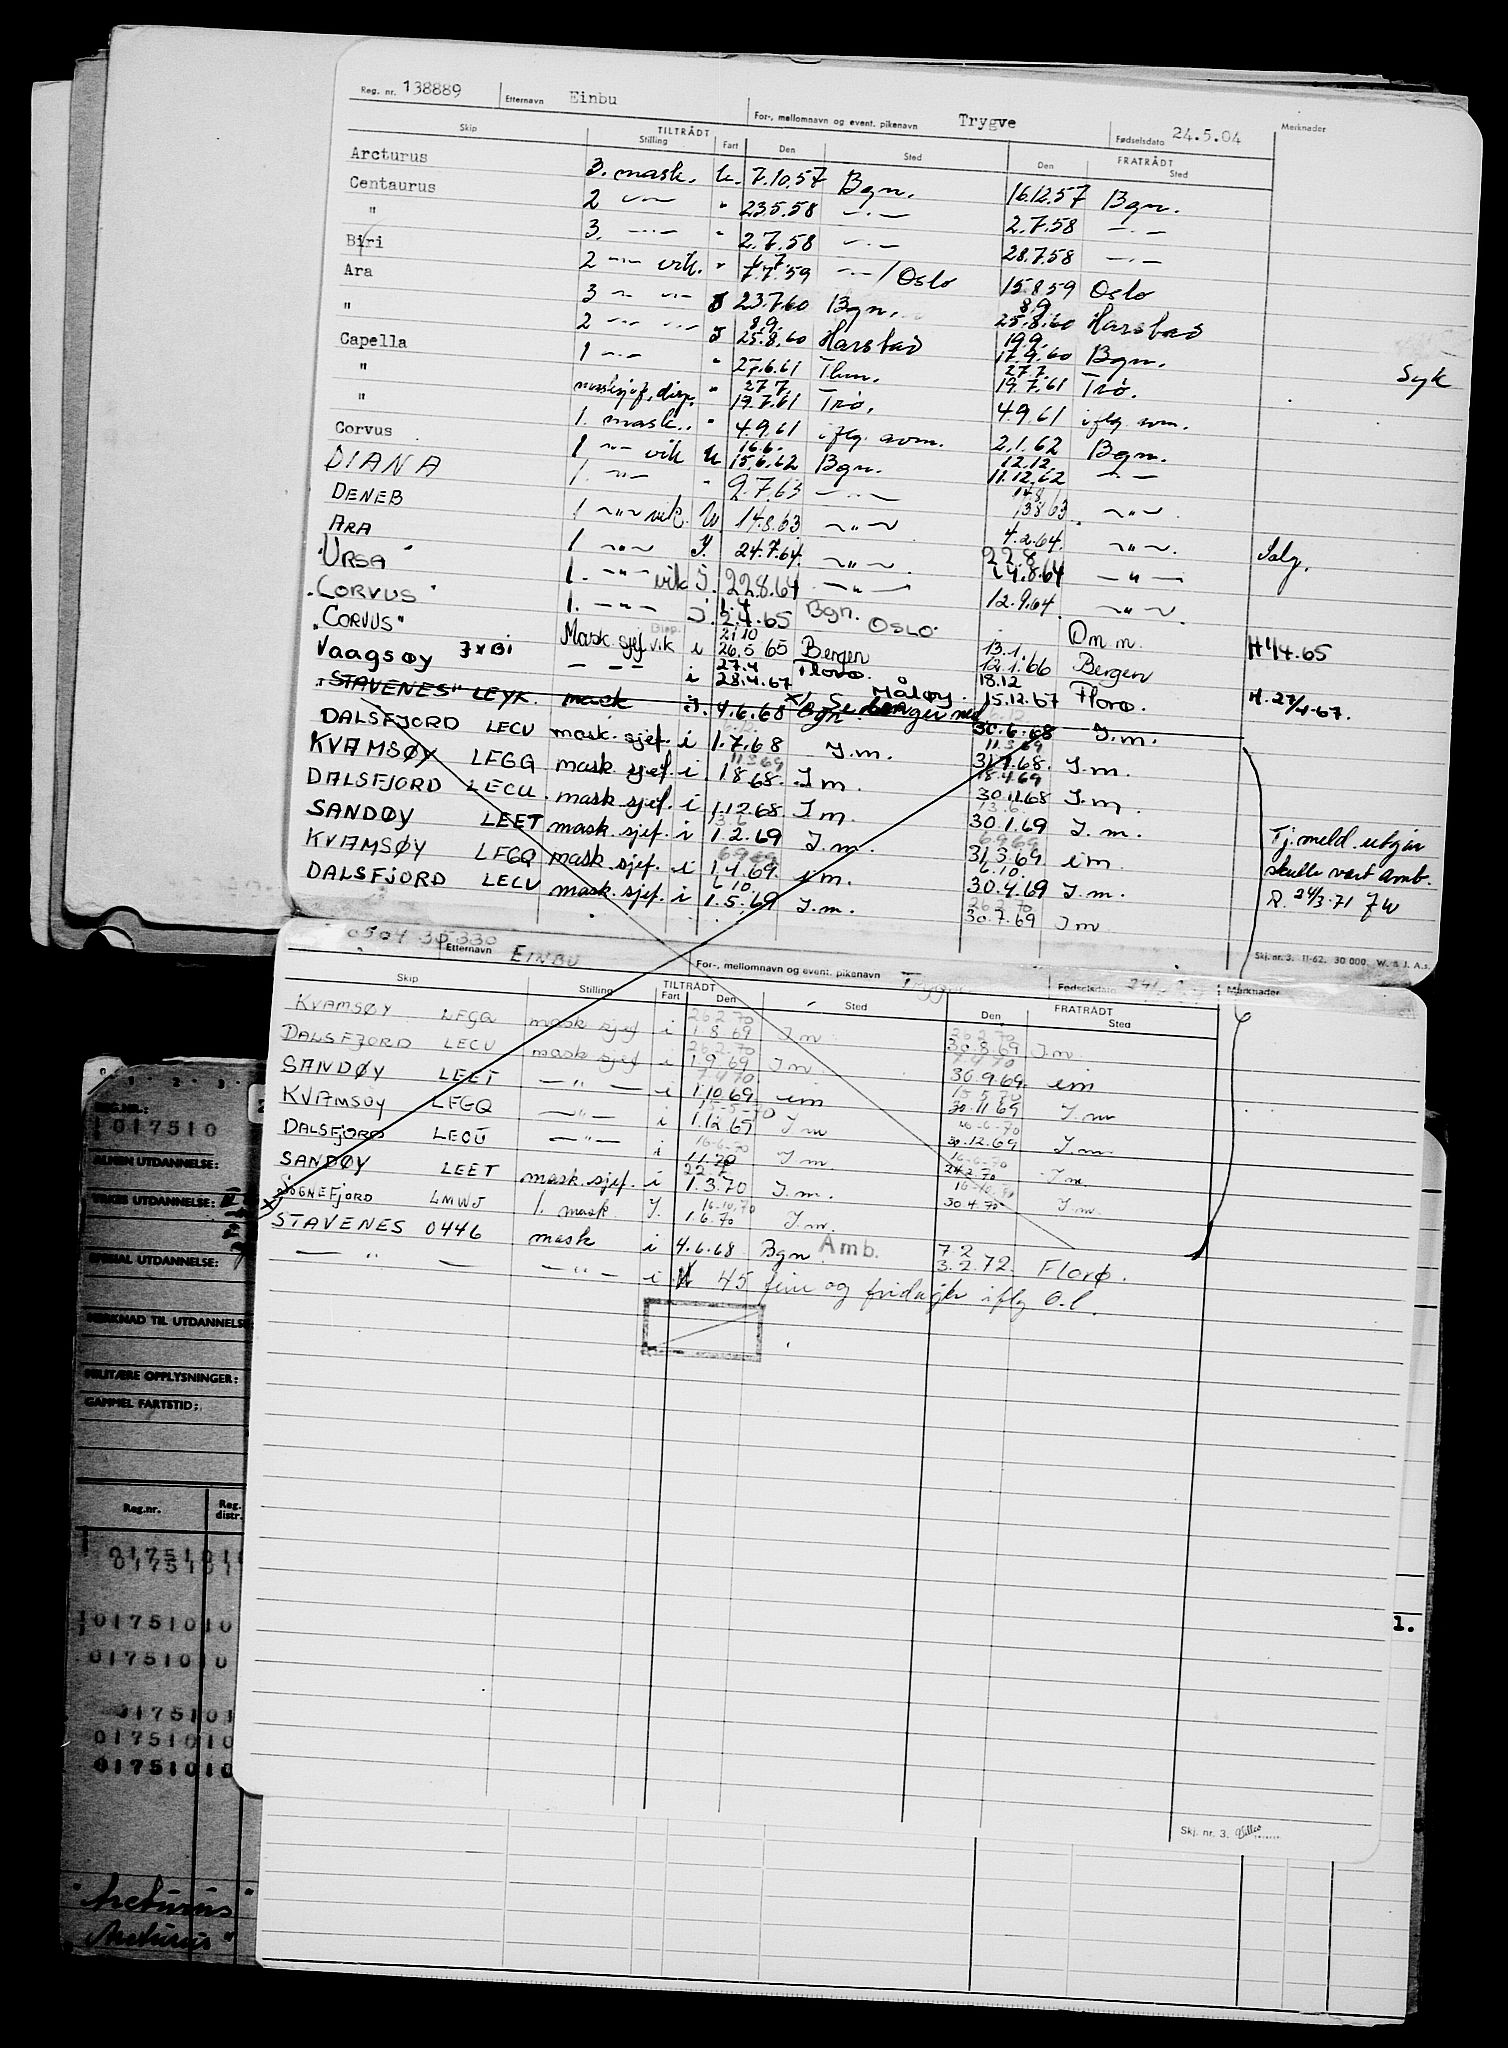 Reg. nr. 138889 Etternavn Einbu For-, mellomnavn og event. pikenavn Trygve Fødselsdato 24.5.04 Merknader
Skip TILTRÅDT Stilling Fart Den Sted Den FRATRÅDT Sted
Arcturus 3. mask. U. 7.10.57 Bgn. 16.12.57 Bgn.
Centaurus 2 -"- " 23.5.58 -"- 2.7.58 -"-
" 3. -"- " 2.7.58 -"- 28.7.58 -"-
Biri 2 -"- vik. " 7.7.59 -"- / Oslo 15.8.59 Oslo
Ara 3 -"- -"- 23.7.60 Bgn. 8.9. 25.8.60 Harstad
" 2 -"- -"- J 8.9. 25.8.60 Harstad 19.9. 17.9.60 Bgn.
Capella 1 -"- " 27.6.61 Thm. 27.7. 19.7.61 Trø. Syk
" masksjef. disp. " 27.7. 19.7.61 Trø. 4.9.61 iflg. avm.
" 1. mask. " 4.9.61 iflg. avm. 2.1.62 Bgn.
Corvus 1 -"- vik U 16.6. 15.6.62 Bgn. 12.12. 11.12.62 -"-
DIANA 1. -"- " 9.7.63 -"- 14.8. 13.8.63 -"-
DENEB 1 -"- vik. U. 14.8.63 -"- 4.2.64. -"-. Salg.
ARA 1 -"- J. 24.7.64. -"- 22.8. 21.8.64 -"-
"URSA" 1. -"- vik J. 22.8.64 -"- 12.9.64. -"-.
"CORVUS" 1. -"- J. 1.4 2.4.65 Bgn. OSLO. Om m. H 1/4.65
"CORVUS" Mask sjef vik Disp. i 21.10 26.5 65 Bergen 13.1. 12.1.66 Bergen
Vaagsøy JXBI - -"- i 27.4 28.4.67 Florø. Måløy. 18.12 15.12.67 Florø. H. 27/4-67.
"STAVENES" LEYK. mask J. 4.6.68 Bgn 30.6.68 J.m.
DALSFJORD LECU mask. sjef. i 1.7.68 J.m. 11.3.69 31.7.68. J.m.
KVAMSØY LFGQ mask. sjef. i 11.3.69 1.8.68. J.m 18.4.69 30.11.68 J.m.
DALSFJORD LECU. mask. sjef. i 1.12.68 J.m 13.6 30.1.69 J.m.
SANDØY LEET mask. sjef. i 13.6 1.2.69 J.m. 6.9.69 31.3.69 im Tj. meld. utgår
KVAMSØY LFGQ mask. sjef. i 6.9.69 1.4.69. im. 6.10. 30.4.69 J.m. skulle vært amb.
DALSFJORD LECU mask. sjef. i 6.10. 1.5.69 J.m. 26.2.70 30.7.69 J.m R. 24/3-71 JW
Skj. nr. 3. 11-62. 30 000. W. & J. A.s.
0504 35330 Etternavn EINBU For-, mellomnavn og event. pikenavn Trygve Fødselsdato Merknader
Skip Stilling TILTRÅDT Fart Den Sted Den FRATRÅDT Sted
KVAMSØY LFGQ mask sjef i 26.2.70 1.8.69 J.m. 26.2.70 30.8.69 J.m.
DALSFJORD LECU mask sjef i 26.2.70 1.9.69 J.m 7.4.70 30.9.69. im
SANDØY LEET -"- i 7.4.70 1.10.69. im 15.5.70 30.11.69 J.m
KVAMSØY LFGQ -"- i 15-5-70 1.12.69 J.m 16-6-70 30.12.69 J.m
DALSFJORD LECU -"- i 16-6-70 1.1.70 J.m 16-6-70 24.2.70 J.m
SANDØY LEET mask. sjef. i 22.7. 1.3.70 J.m. 30.4.70 J.m.
SOGNEFJORD LMWJ 1. mask J. 16-10.70 1.6.70 J.m.
STAVENES 0446 mask i 4.6.68 Bgn. Amb. 7.2 3.2.72. Florø.
-"- -"- i 45 ferie og fridager iflg O.l.
Skj. nr. 3.
REG.NR.:
1017510
ALMEN UTDANNELSE:
YRKES UTDANNELSE:
SPESIAL UTDANNELSE:
MERKNAD TIL UTDANNELSE
MILITÆRE OPPLYSNINGER:
GAMMEL FARTSTID:
Reg.nr. Reg. distr.
01751010
01751010
0175101
01751010
01751010
1.
"Arcturus"
"Arcturus"